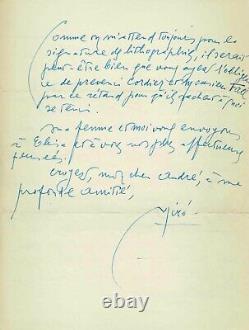 Comme on m'attend toujours pour la
signature de lithographies, il serait
peut-être bien que vous ayez l'obligean
ce de prévenir Cordier et
par ce retard pour qu'ils sachent à quoi
se tenir.
Ma femme et moi vous envoyons
à Elisa et à vous nos plus affectueuses
pensées.
croyez, mon cher andré, à ma
profonde amitié,
Miró.